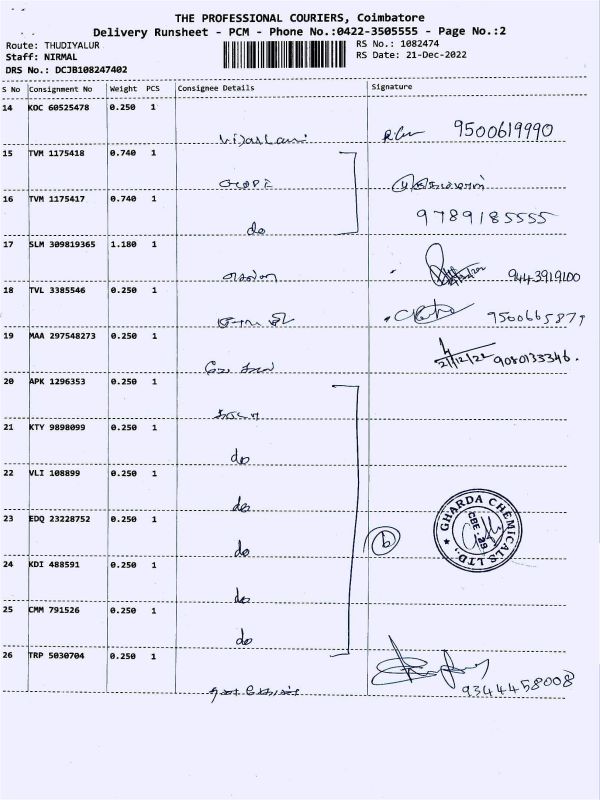 THE PROFESSIONAL COURIERS, Coimbatore
Delivery Runsheet - PCM - Phone No.:0422-3505555 - Page No.:2
Route: THUDIYALUR RS No.: 1082474
Staff: NIRMAL RS Date: 21-Dec-2022
DRS No.: DCJB108247402
S No Consignment No Weight PCS Consignee Details Signature
14 KOC 60525478 0.250 1
9500619990
15 TVM 1175418 0.740 1
16 TVM 1175417 0.740 1
do 9789185555
17 SLM 309819365 1.180 1
9443919100
18 TVL 3385546 0.250 1
9500665877
19 MAA 297548273 0.250 1
21/12/22 9080133346.
20 APK 1296353 0.250 1
21 KTY 9898099 0.250 1
do
22 VLI 108899 0.250 1
do
23 EDQ 23228752 0.250 1
do 6 GHARDA CHEMICALS LTD., CBE-29
24 KDI 488591 0.250 1
do
25 CMM 791526 0.250 1
do
26 TRP 5030704 0.250 1
9344458008